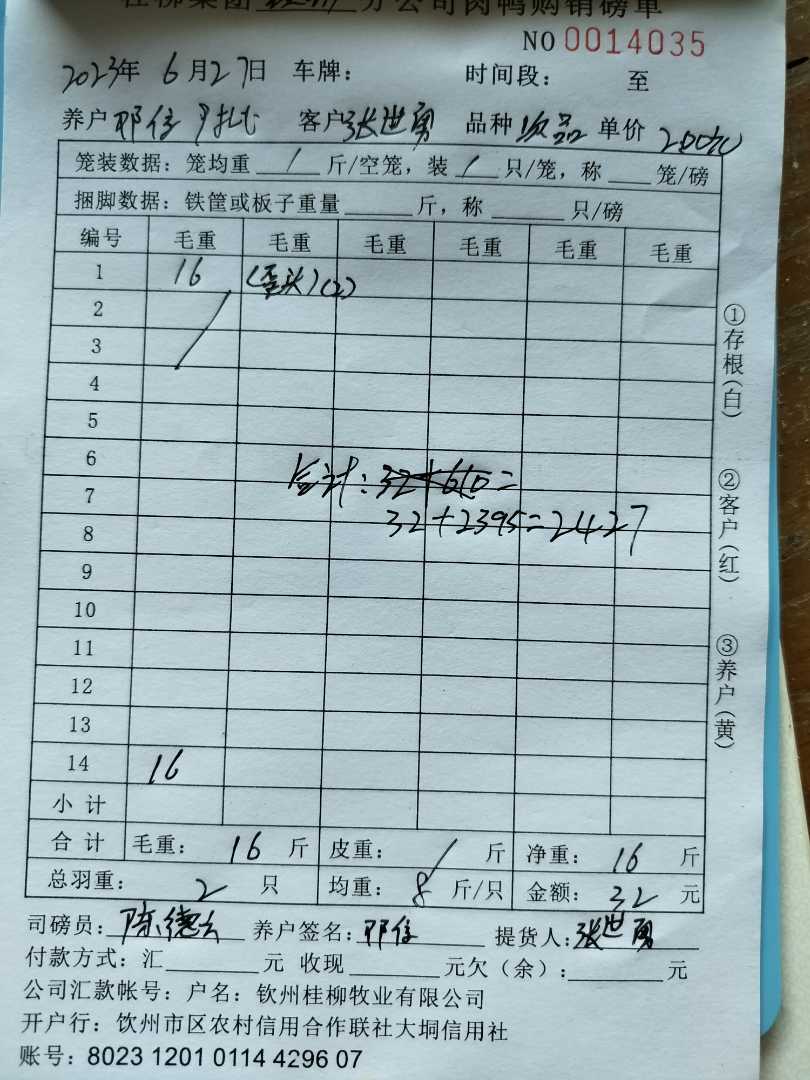 桂柳集团 分公司肉鸭购销磅单
NO 0014035
2023年 6月27日 车牌： 时间段： 至
养户 邓信 客户 张进勇 品种 次品 单价 2.00元
笼装数据：笼均重 / 斤/空笼，装 / 只/笼，称 笼/磅
捆脚数据：铁筐或板子重量 斤，称 只/磅
编号 毛重 毛重 毛重 毛重 毛重 毛重
1 16 (歪头)(2)
2
3
4
5
6
7
8
9
10
11
12
13
14 16
合计：32+650=
32+2395=2427
小计
合计 毛重： 16 斤 皮重： / 斤 净重： 16 斤
总羽重： 2 只 均重： 8 斤/只 金额： 32 元
司磅员：陈德云 养户签名：邓信 提货人：张进勇
付款方式：汇 元 收现 元欠（余）： 元
公司汇款帐号：户名：钦州桂柳牧业有限公司
开户行：饮州市区农村信用合作联社大垌信用社
账号：8023 1201 0114 4296 07
①存根(白)
②客户(红)
③养户(黄)